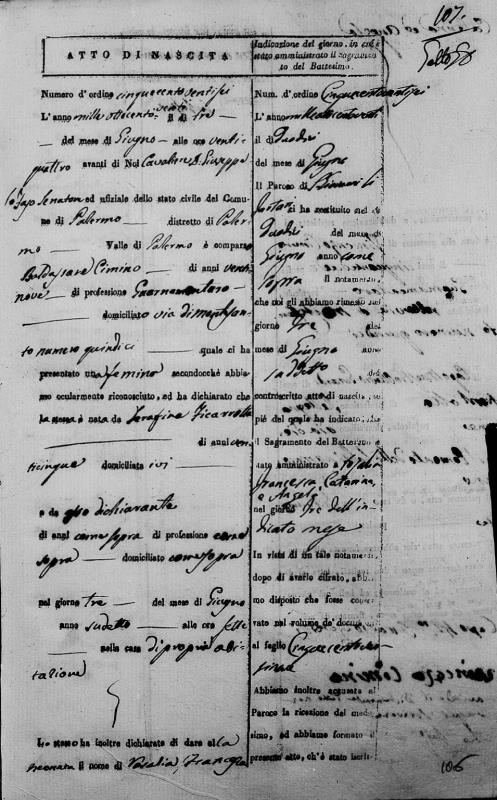 107.
ATTO DI NASCITA
Numero d'ordine cinquecentoventisei
L'anno mille ottocento venti il di tre
del mese di Giugno alle ore venti
quattro avanti di Noi Cavaliere D. Giuseppe
Senatore ed ufiziale dello stato civile del Comu-
ne di Palermo distretto di Paler
mo Valle di Palermo è comparso
Baldassare Cimino di anni venti
nove di professione Guarnamentaro
domiciliato via di
to numero quindici quale ci ha
presentato una femina secondocchè abbia-
mo ocularmente riconosciuto, ed ha dichiarato che
la stessa è nata da Serafina
di anni ven
ticinque domiciliata ivi
e da esso dichiarante
di anni come sopra di professione come
sopra domiciliato come sopra
nel giorno tre del mese di Giugno
anno sudetto alle ore sette
nella casa di propria abi
tazione
Lo stesso ha inoltre dichiarato di dare alla
neonata il nome di Rosalia, Francesca
Indicazione del giorno, in cui è
stato amministrato il Sagramen
to del Battesimo.
Num. d'ordine Cinquecentoventisei
L'anno mille ottocento venti
il di
del mese di Giugno
Il Paroco di
ci ha restituito nel dì
del mese di
Giugno anno come
sopra il notamento
che noi gli abbiamo rimesso nel
giorno tre del
mese di Giugno anno
sudetto del
controscritto atto di nascita,
piè del quale ha indicato,
il Sagramento del Battesimo è
stato amministrato a Rosalia
Francesca, Catarina,
e Angela
nel giorno tre dell'in
dicato mese
In vista di un tale notamento
dopo di averlo cifrato, abbia
mo disposto che fosse conser
vato nel volume de' documenti
al foglio Cinquecentoven
Abbiamo inoltre accusata al
Paroco la ricezione del mede
simo, ed abbiamo formato il
presente atto, ch'è stato iscrit-
Cimino
106